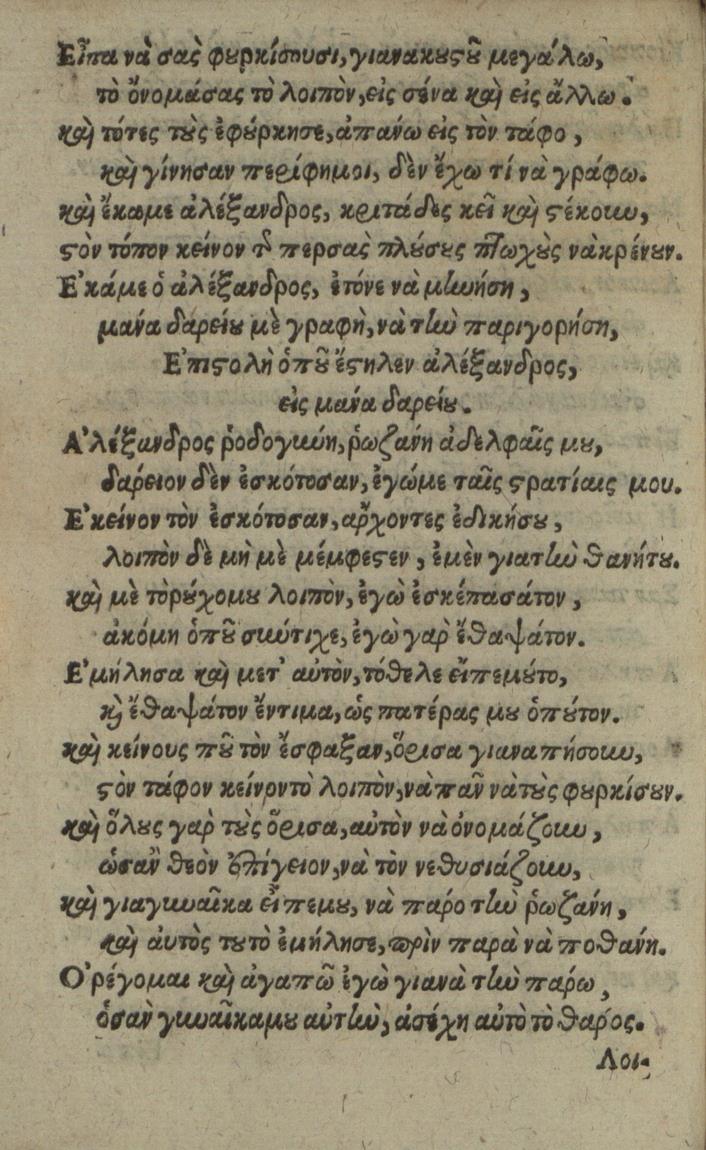 Εἶπα νὰ σᾶς φουρκίσουσι, γιανακουστοῦ μεγάλω,
τὸ ὄνομάσας τὸ λοιπὸν, εἰς σένα καὶ εἰς ἄλλω.
καὶ τότες τοὺς ἐφούρκησε, ἀπανω εἰς τὸν τάφο,
καὶ γίνησαν περίφημοι, δὲν ἔχω τί νὰ γράφω.
καὶ ἔκαμε ἀλέξανδρος, κριτάδες κεῖ καὶ στέκουν,
στὸν τόπον κεῖνον τῆς περσας πλούσους πτωχοὺς νὰκρένουν.
Ἐκάμε ὁ ἀλέξανδρος, ἐτόνε νὰ μηνήση,
μάνα δαρείου μὲ γραφὴ, νὰ τὴν παριγορήση,
Ἐπιστολὴ ὁποῦ ἔστηλεν ἀλέξανδρος,
εἰς μάνα δαρείου.
Ἀλέξανδρος ῥοδογύνη, ῥωζάνη ἀδελφαῖς μου,
δάρειον δὲν ἐσκότοσαν, ἐγώμε ταῖς στρατίαις μου.
Ἐκεῖνον τὸν ἐσκότοσαν, ἄρχοντες ἐδικήσου,
λοιπὸν δὲ μὴ μὲ μέμφεστεν, ἐμὲν γιατὴν θανήτου.
καὶ μὲ τὸρούχομου λοιπὸν, ἐγὼ ἐσκέπασάτον,
ἀκόμη ὁποῦ σκύτιχε, ἐγὼ γὰρ ἔθαψάτον.
Ἐμήλησα καὶ μετ' αὐτὸν, τόθελε εἴπεμούτο,
καὶ ἔθαψάτον ἔντιμα, ὡς πατέρας μου ὁπούτον.
καὶ κείνους ποῦ τὸν ἔσφαξαν, ὅρισα γιαναπήσουν,
στὸν τάφον κείνοντὸ λοιπὸν, νὰπᾶν νὰτοὺς φουρκίσουν.
καὶ ὅλους γαρ τοὺς ὅρισα, αὐτὸν νὰ ὀνομάζουν,
ὡσὰν θεὸν ἐπίγειον, νὰ τὸν νεθυσιάζουν,
καὶ γιαγυναῖκα εἶπεμου, νὰ πάρο τὴν ῥωζάνη,
καὶ ἀυτὸς τουτὸ ἐμήλησε, πρὶν παρὰ νὰ ποθάνη.
Ὀρέγομαι καὶ ἀγαπῶ ἐγὼ γιανὰ τὴν πάρω,
ὁσὰν γυναῖκαμου αὐτὴν, ἀσέχη αὐτὸ τὸ θάρος.
Λοι-